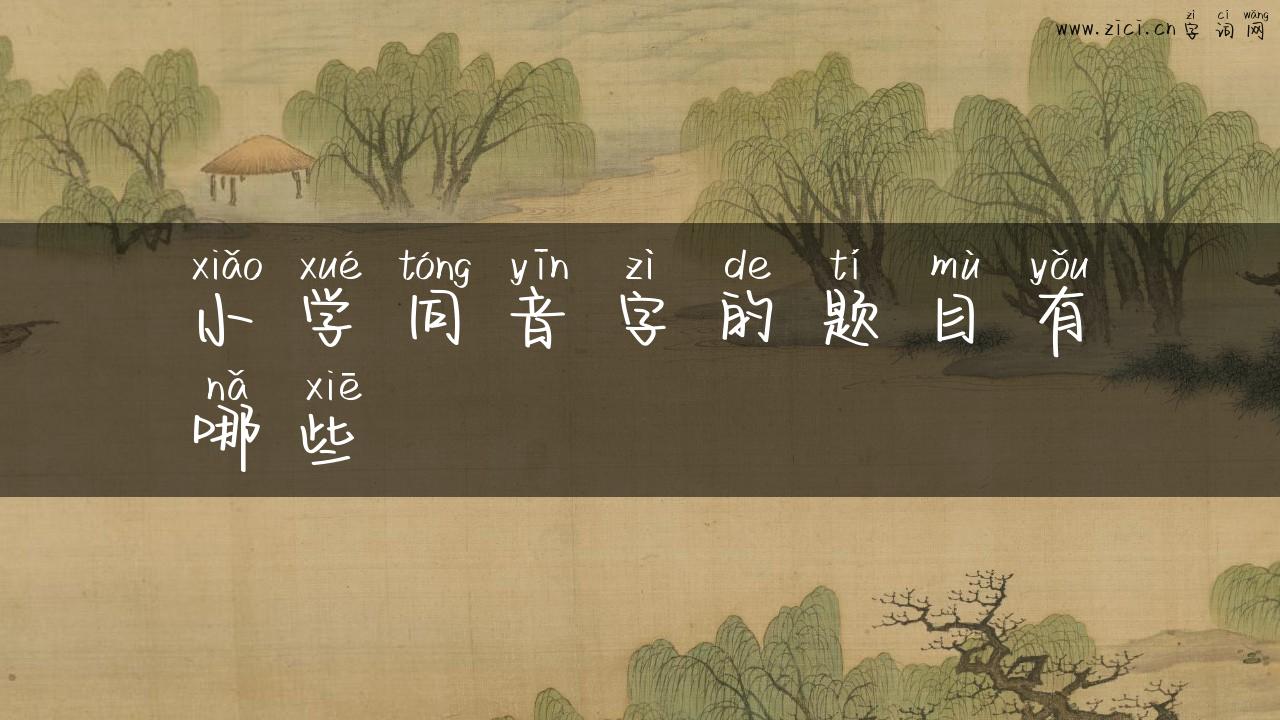 zì cí wǎng
www.zici.cn 字词网
xiǎo xué tóng yīn zì de tí mù yǒu
小学同音字的题目有
nǎ xiē
哪些